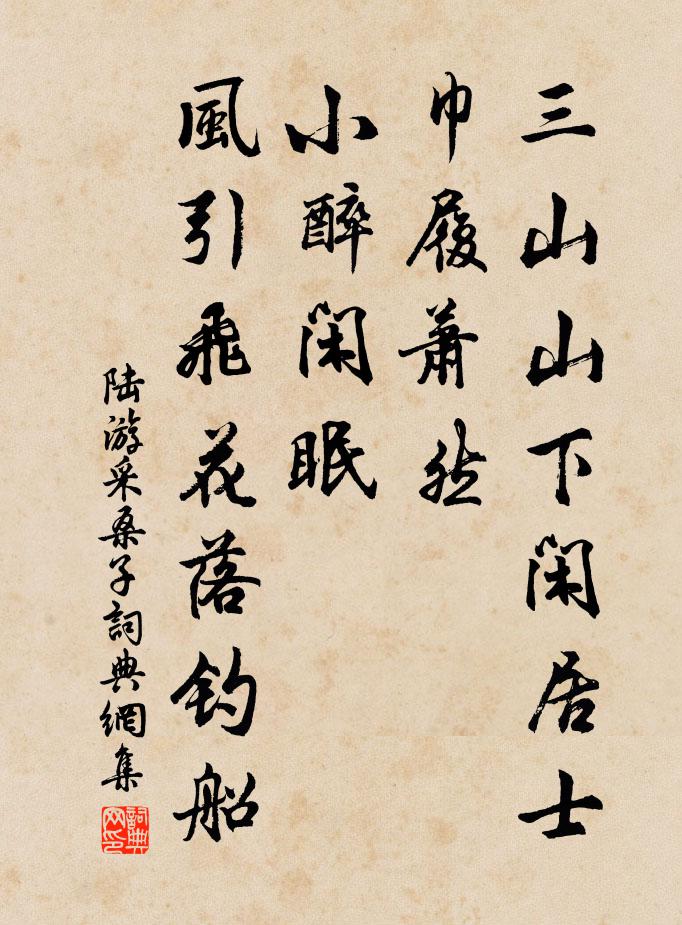 三山山下閑居士
巾履蕭然
小醉閑眠
風引飛花落釣船
陆游采桑子詞典網集
詞典网印